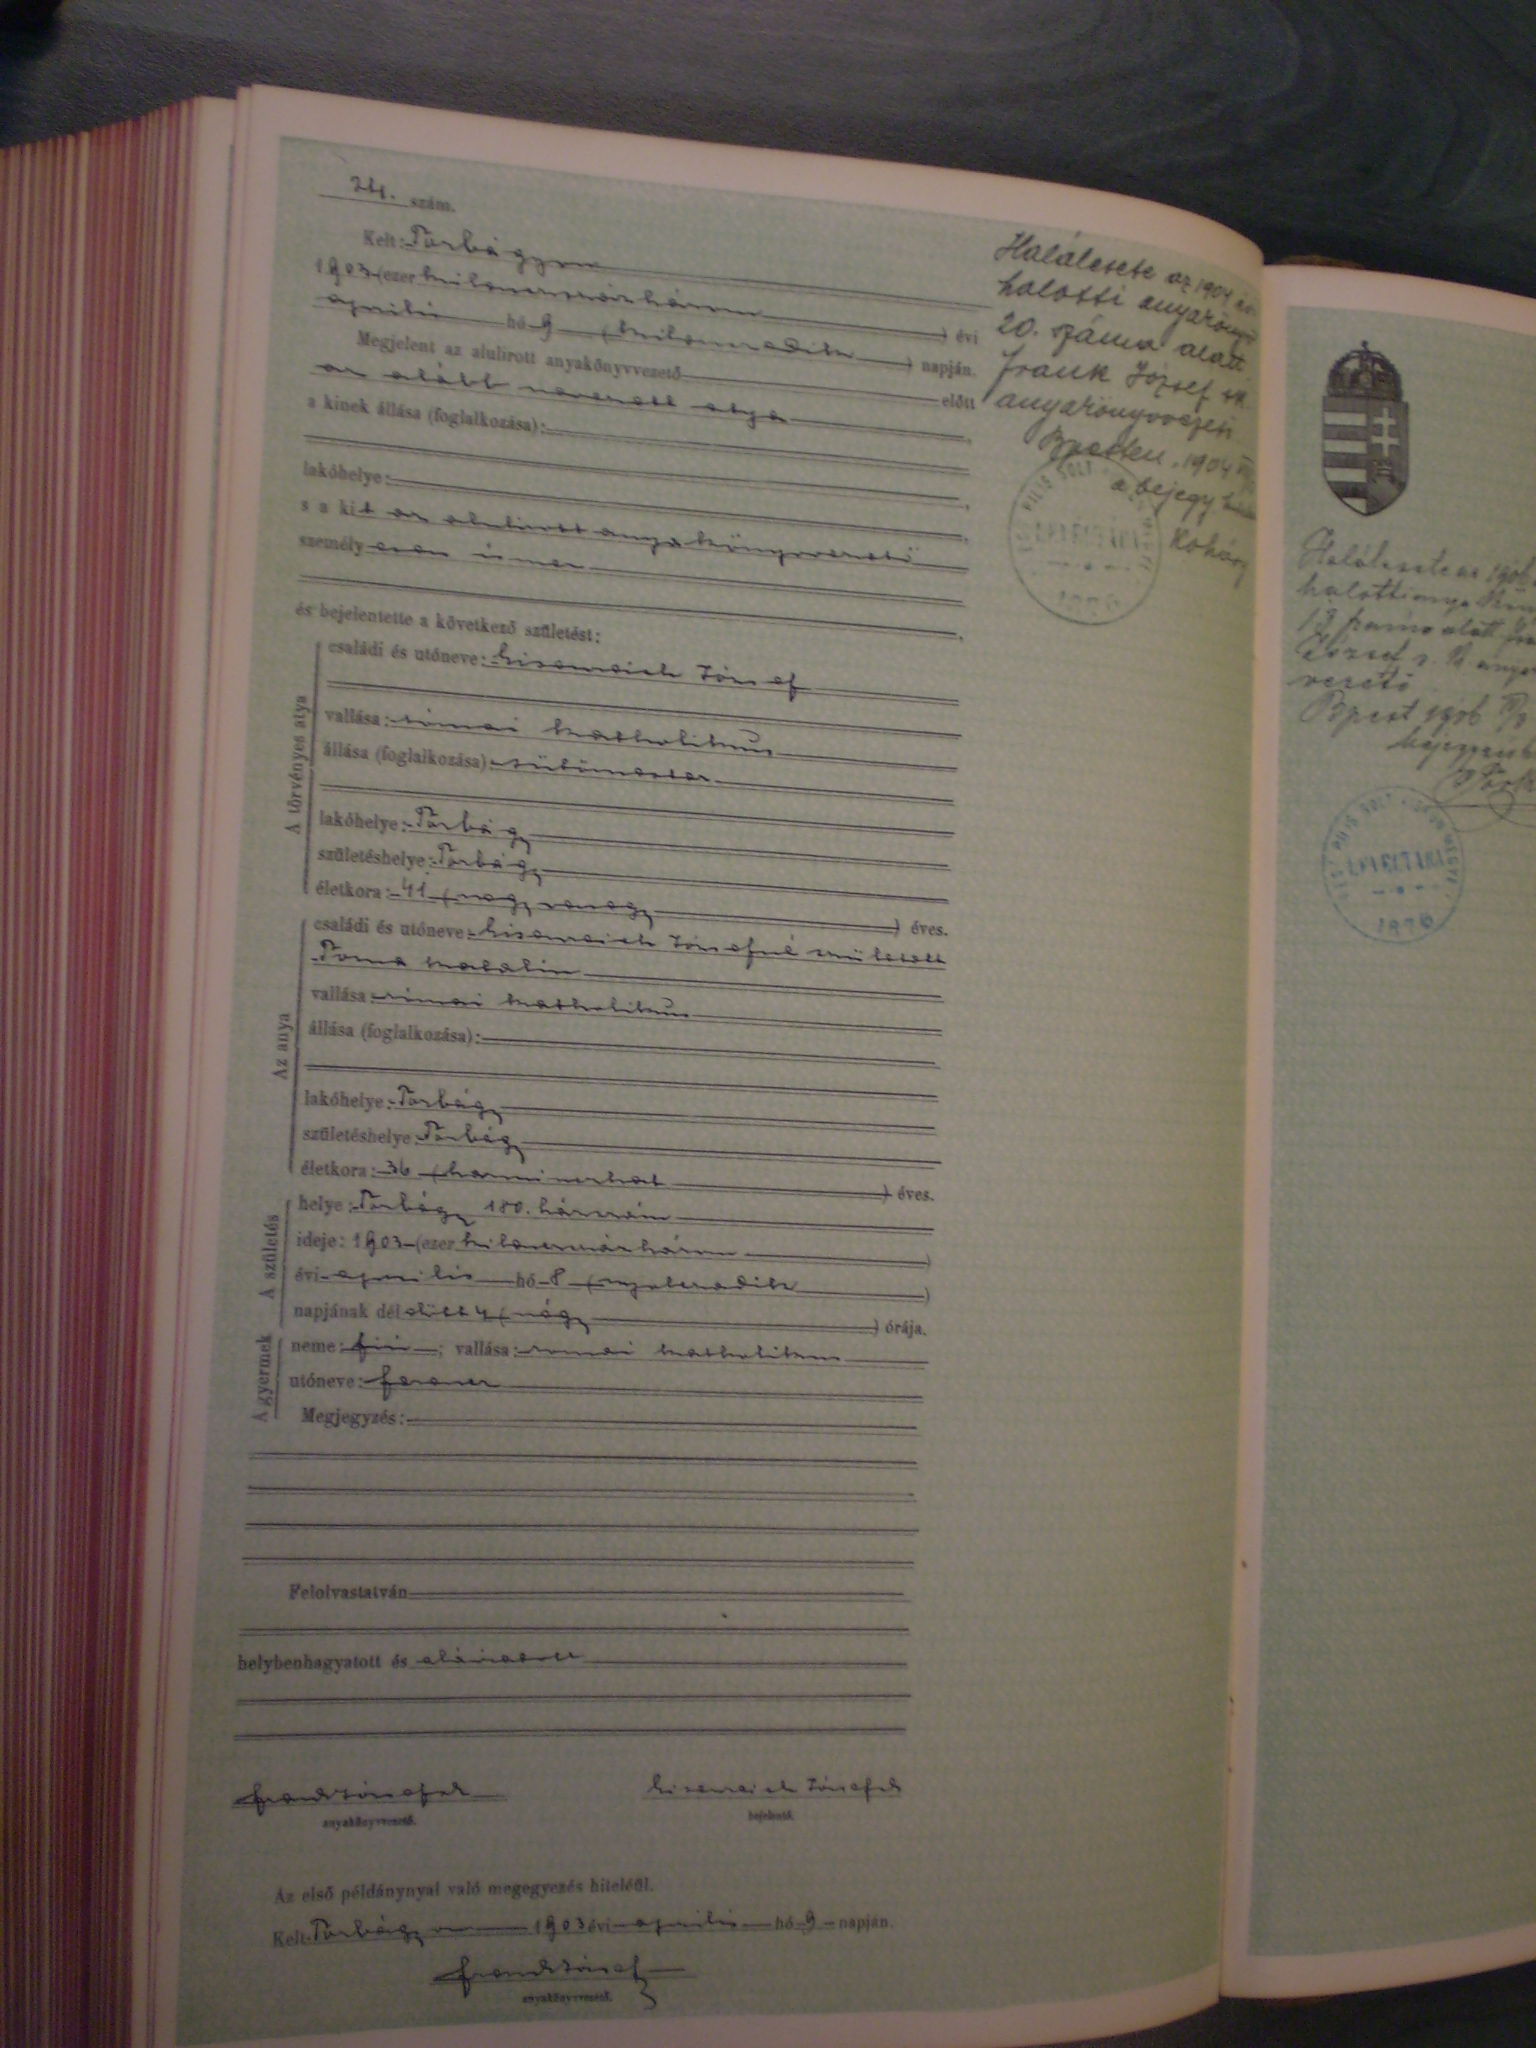 24. szám.
Kelt: Torbágyon
1903 (ezer kilencszázhárom) évi
április hó 9 (kilencedik) napján.
Megjelent az alulirott anyakönyvvezető előtt
az alább nevezett atya
a kinek állása (foglalkozása):
lakóhelye:
s a kit az alulirott anyakönyvvezető
személyesen ismer
és bejelentette a következő születést:
A törvényes atya
családi és utóneve: József
vallása: római katholikus
állása (foglalkozása): sütőmester
lakóhelye: Torbágy
születéshelye: Torbágy
életkora: 41 (negyvenegy) éves.
Az anya
családi és utóneve: Józsefné született
Katalin
vallása: római katholikus
állása (foglalkozása):
lakóhelye: Torbágy
születéshelye: Torbágy
életkora: 36 (harminczhat) éves.
A születés
helye: Torbágy 180. házszám
ideje: 1903 (ezer kilencszázhárom)
évi április hó 8 (nyolczadik)
napjának délelőtt 4 (négy) órája.
A gyermek
neme: fiú; vallása: római katholikus
utóneve: Ferencz
Megjegyzés:
Felolvastatván
helybenhagyatott és aláiratott
Frank József
anyakönyvvezető.
József
bejelentő.
Az első példánynyal való megegyezés hiteléül.
Kelt Torbágyon 1903 évi április hó 9 napján.
Frank József
anyakönyvvezető.
Halálesete az 1904
halotti
20. száma alatt
Frank József
Bpesten, 1904
a bejegy
PEST PILIS SOLT
LEVÉLTÁRA
1876
Halálesete az 1906
halotti
13 alatt
József
vezető
Bpest 1906
PEST PILIS SOLT
LEVÉLTÁRA
1876